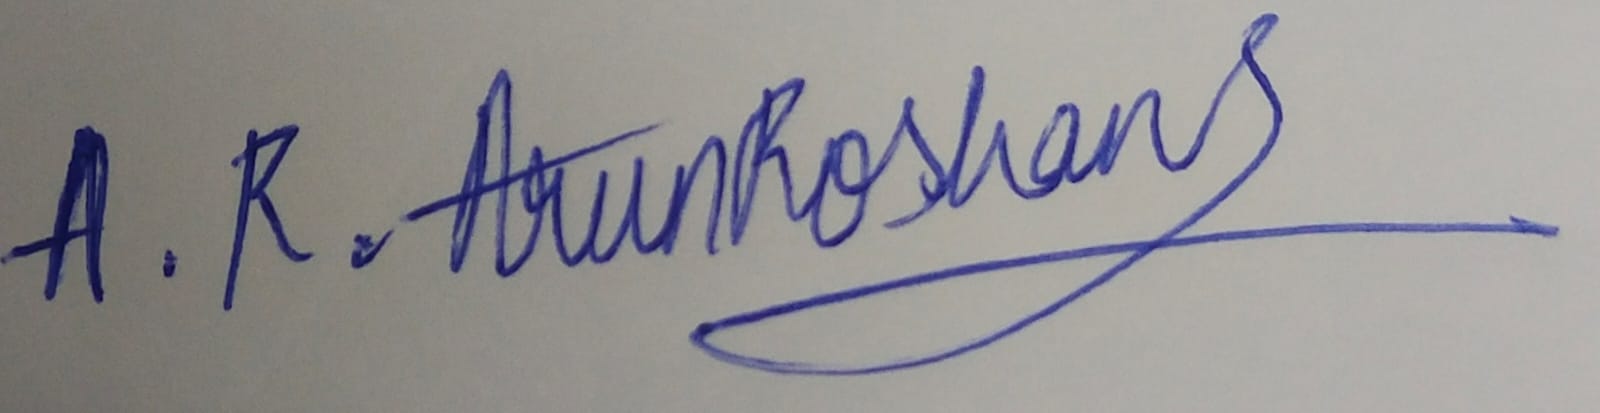 A. R. ArunRoshan